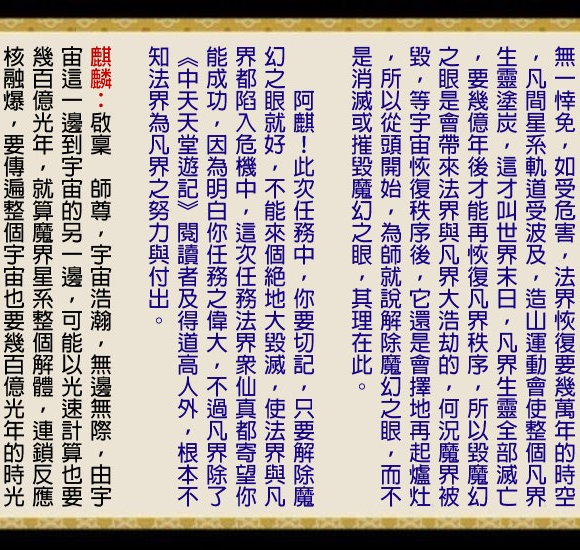 無一悻免，如受危害，法界恢復要幾萬年的時空
，凡間星系軌道受波及，造山運動會使整個凡界
生靈塗炭，這才叫世界末日，凡界生靈全部滅亡
，要幾億年後才能再恢復凡界秩序，所以毀魔幻
之眼是會帶來法界與凡界大浩劫的，何況魔界被
毀，等宇宙恢復秩序後，它還是會擇地再起爐灶
，所以從頭開始，為師就說解除魔幻之眼，而不
是消滅或摧毀魔幻之眼，其理在此。
阿麒！此次任務中，你要切記，只要解除魔
幻之眼就好，不能來個絕地大毀滅，使法界與凡
界都陷入危機中，這次任務法界眾仙真都寄望你
能成功，因為明白你任務之偉大，不過凡界除了
《中天天堂遊記》閱讀者及得道高人外，根本不
知法界為凡界之努力與付出。
麒麟：啟稟　師尊，宇宙浩瀚，無邊無際，由宇
宙這一邊到宇宙的另一邊，可能以光速計算也要
幾百億光年，就算魔界星系整個解體，連鎖反應
核融爆，要傳遍整個宇宙也要幾百億光年的時光